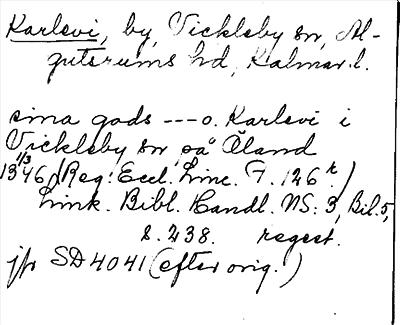 Karlevi, by, Vickleby sn, Al-
gutsrums hd, Kalmar l.
sina gods --- o. Karlevi i
Vickleby sn på Öland
1/3
1346 (Reg: Eccl. Linc. F. 126 r.)
Link. Bibl. Handl. NS: 3, Bil. 5,
s. 238. regest.
jfr SD 4041 (efter orig.)